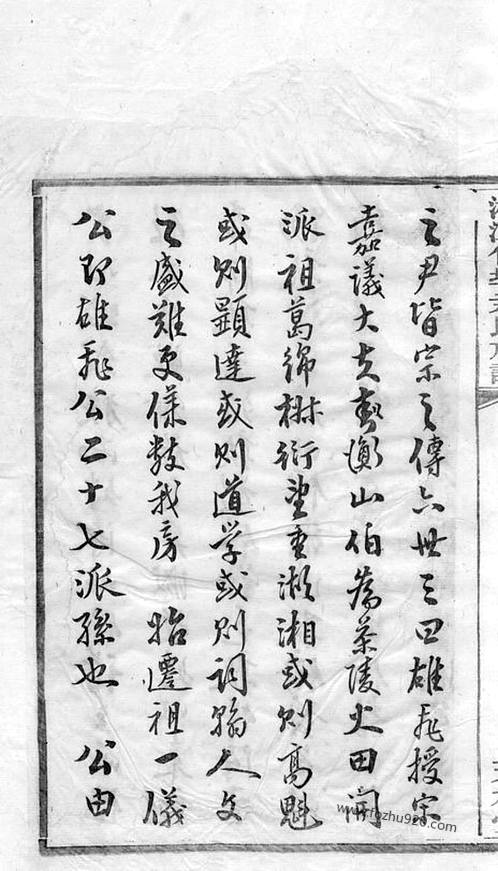 之尹皆宗之傳六世三曰雄飛授宋
嘉議大夫封衡山伯為茶陵火田開
派祖葛綿椒衍望重湖湘或則高魁
或則顯達或則道学或則詞翰人文
之盛難更僕數我房 始遷祖一儀
公即雄飛公二十七派孫也 公由
www.fozhu920.com